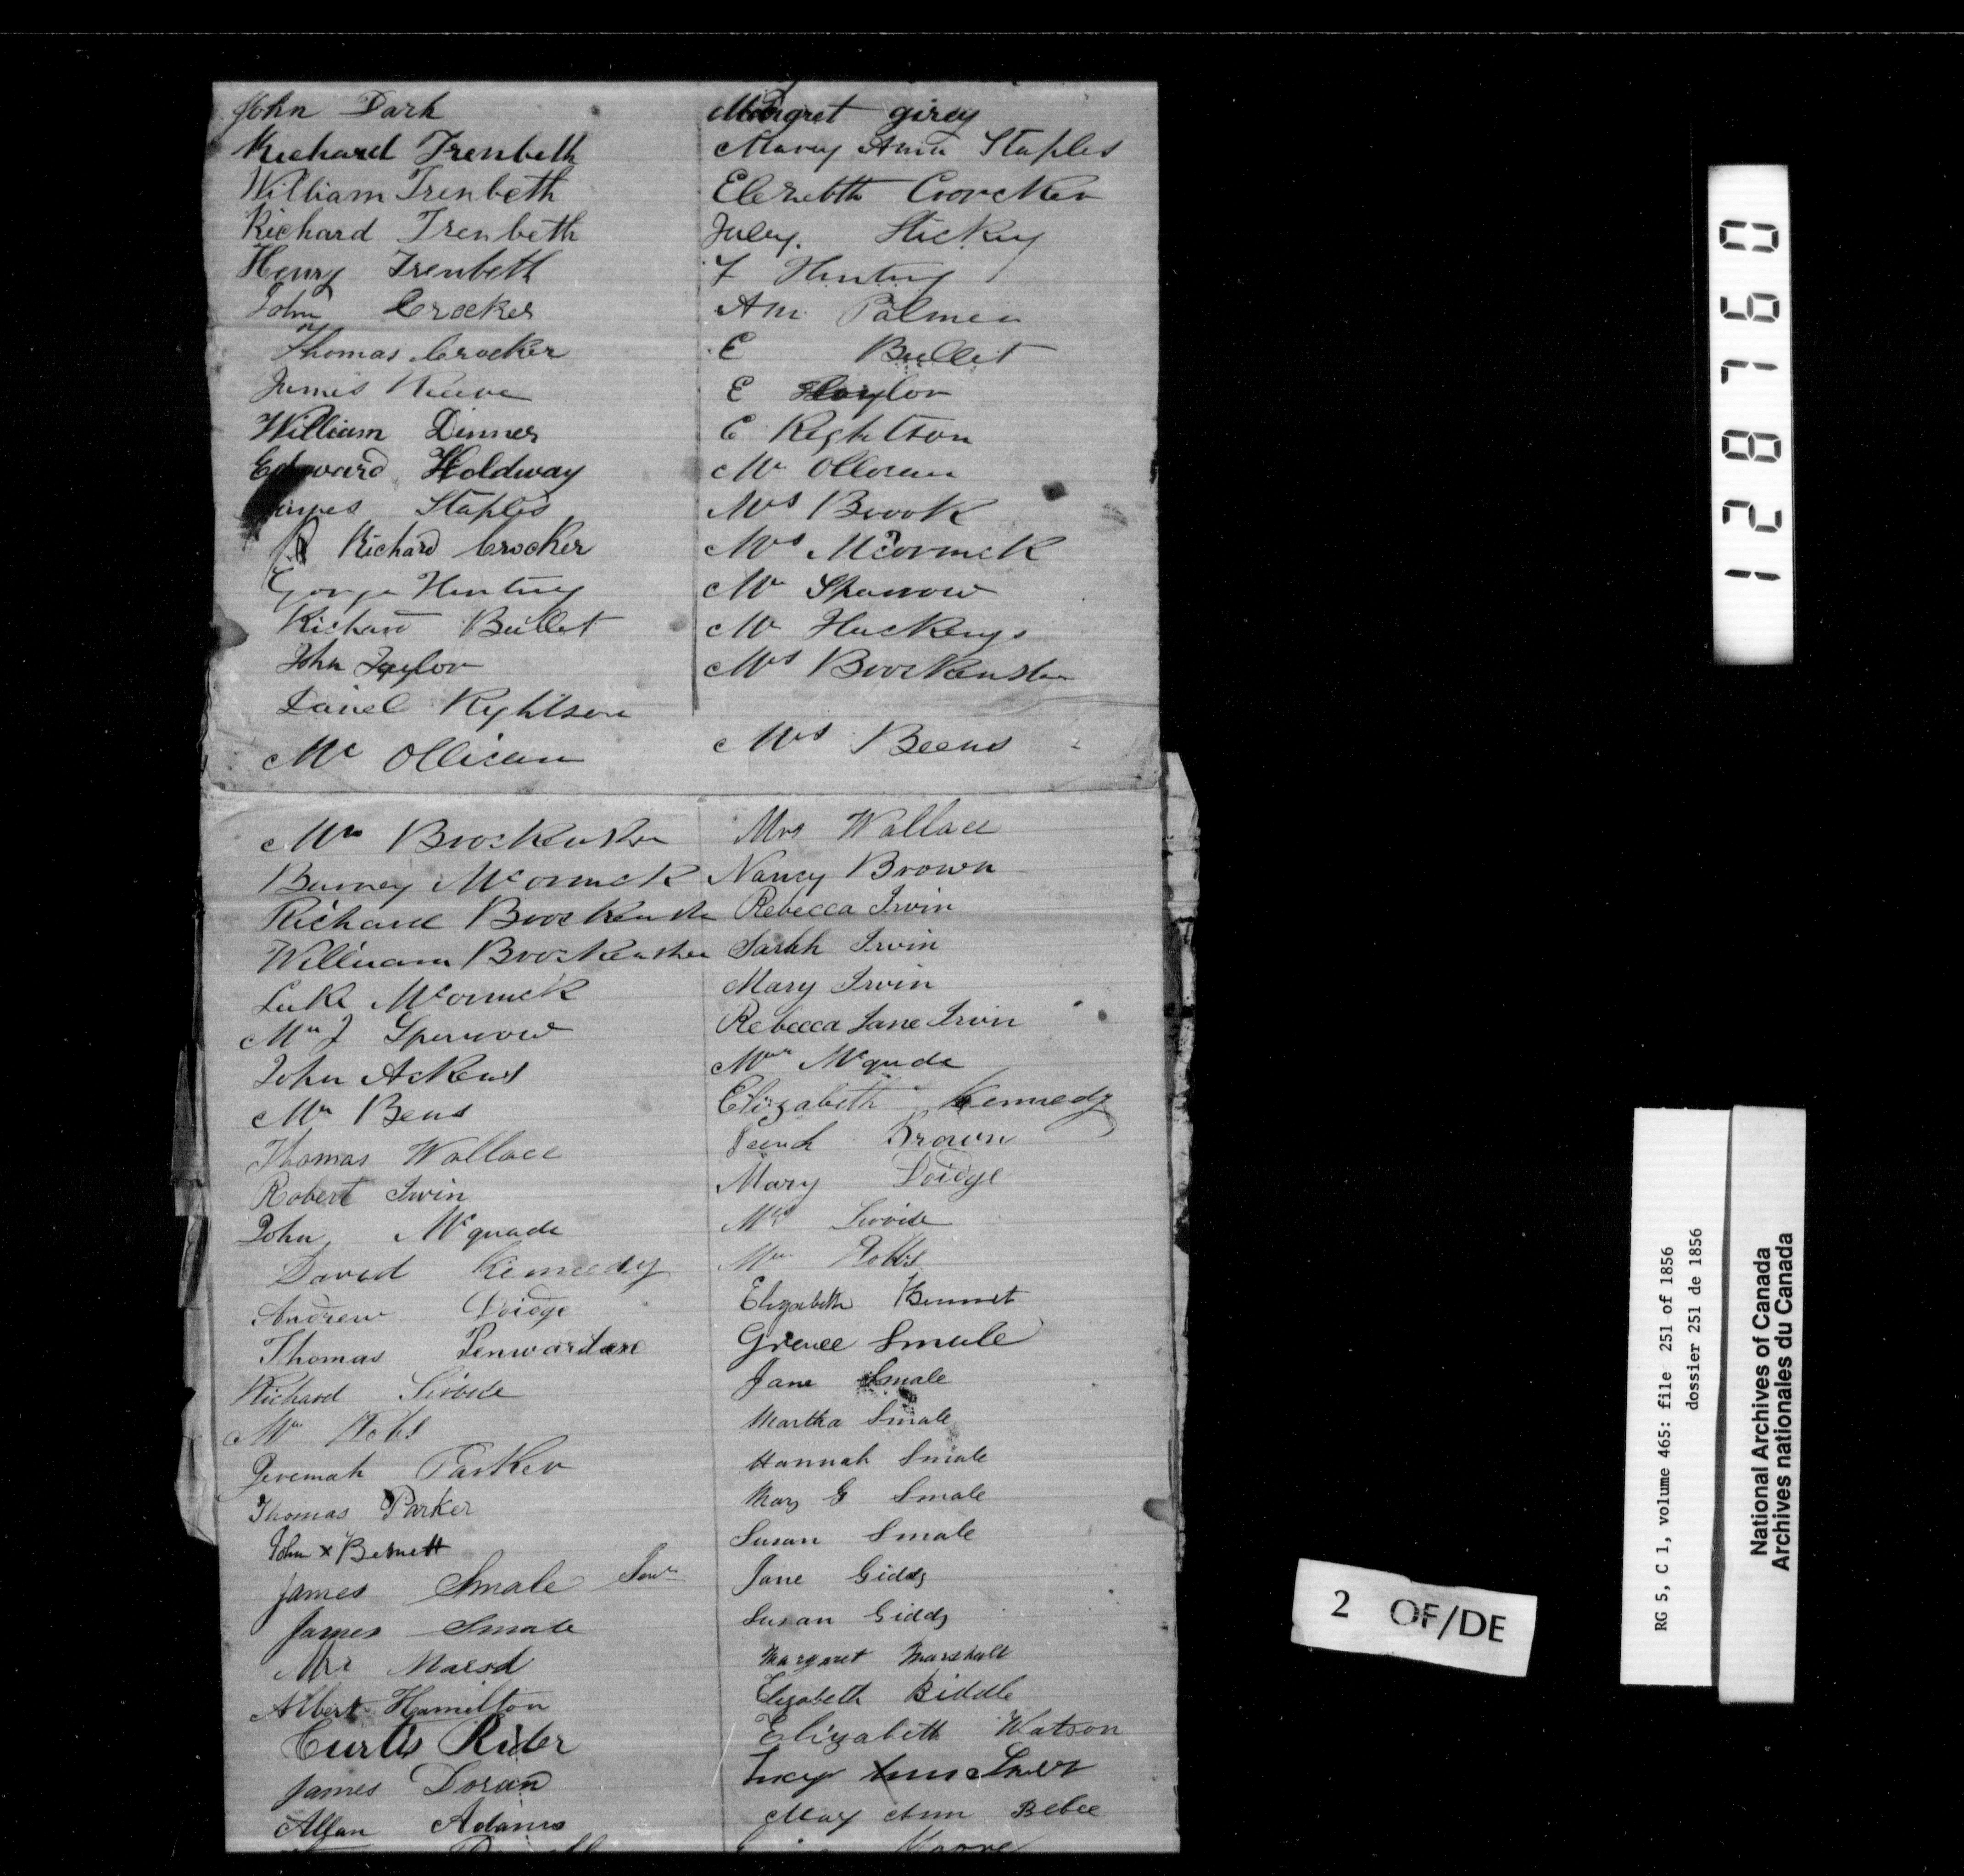 John Dark
Richard Trenbeth
William Trenbeth
Richard Trenbeth
Henry Trenbeth
John Crocker
Thomas Crocker
James Reeve
William Dinner
Edward Holdway
James Staples
Richard Crocker
George Hunting
Richard Bullet
John Taylor
Daniel Rightson
Mr Ollican
Mr Brockensher
Burney McCormick
Richard Brockensher
William Brockensher
Luke McCormick
Mr J Sparrow
John Akens
Mr Bens
Thomas Wallace
Robert Irwin
John McQuade
David Kennedy
Andrew Doidge
Thomas Penwarden
Richard
Mr Hobbs
Jeremah Parker
Thomas Parker
John x Bennett
James Smale Senr
James Smale
Mr
Albert Hamilton
Curtis Rider
James Doran
Allan Adams
Margret girey
Mary Ann Staples
Elezebth Croocker
July Hickey
F Hunting
Ann Palmer
E Bullet
E Taylor
E Rightson
Mr Ollican
Mrs Brook
Mrs McCormick
Mr Sparrow
Mr Huckengs
Mrs Broockensher
Mrs Beens
Mrs Wallace
Nancy Brown
Rebecca Irvin
Sarah Irvin
Mary Irvin
Rebecca Jane Irvin
Mrs Mcqude
Elizabeth Kennedy
Brown
Mary Doidge
Mrs
Mrs Hobbs
Elizabeth Bennet
Smale
Jane Smale
Martha Smale
Hannah Smale
Mary G Smale
Susan Smale
Jane Giddy
Susan Giddy
Margaret Marshall
Elizabeth Biddle
Elizabeth Watson
Lucy Ann
Mary Ann Bebee
Moore
1287760
RG 5, C 1, volume 465: file 251 of 1856
dossier 251 de 1856
National Archives of Canada
Archives nationales du Canada
2 OF/DE